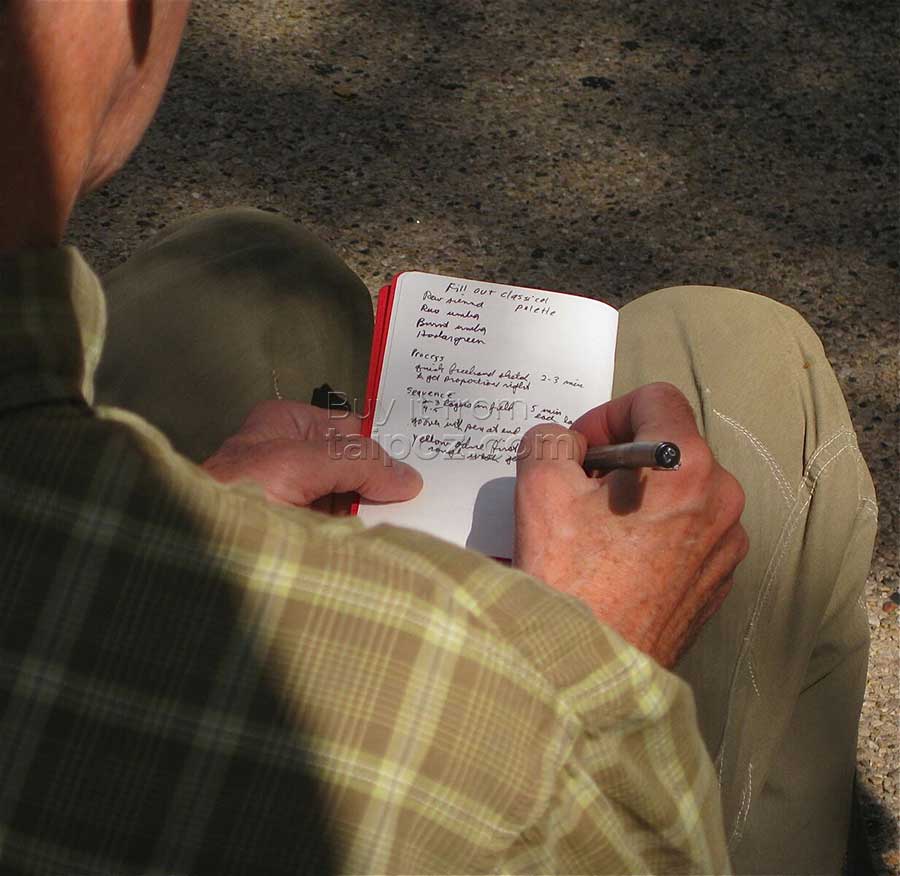 Fill out classical
palette
Raw sienna
Raw umber
Burnt umber
Hookergreen
Process
quick freehand sketch 2-3 mins
to get proportions right
Sequence
2-3 layers in field 5 min
4-5 each
Hoover with pen at end
Yellow ochre first
rough work
Buy from
taipoz.com